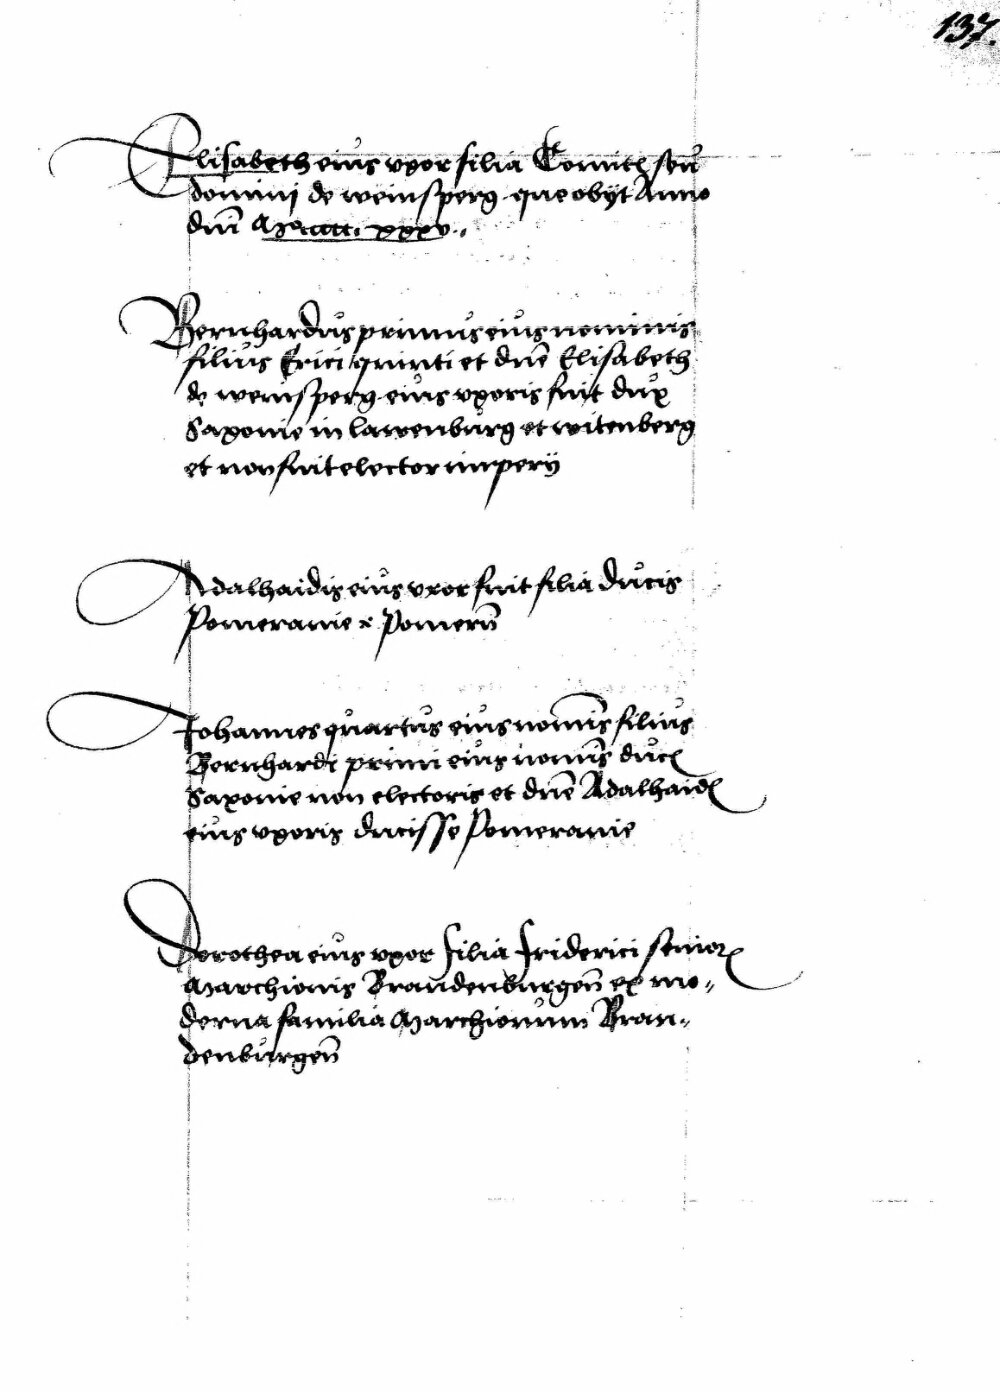 137.
Elisabeth eius vxor filia Comitꝭ seu
domini de weinsperg que obijt Anno
dn̄i Mᵒcccc. xxxv.
Bernhardus primus eius nominis
filius Erici quinti et dn̄e Elisabeth
de weinsperg eius vxoris fuit dux
Saxonie in lawenburg et witenberg
et non fuit elector imperij
Adalhaidis eius vxor fuit filia ducis
Pomeranie Pomern̄
Johannes quartus eius nom̄is filius
Bernhardi primi eius nom̄is ducꝭ
Saxonie non electoris et dn̄e Adalhaidꝭ
eius vxoris ducisse Pomeranie
Dorothea eius vxor filia friderici seniorꝭ
Marchionis Brandenburgen̄ ex mo-
derna familia Marchionum Bran-
denburgen̄